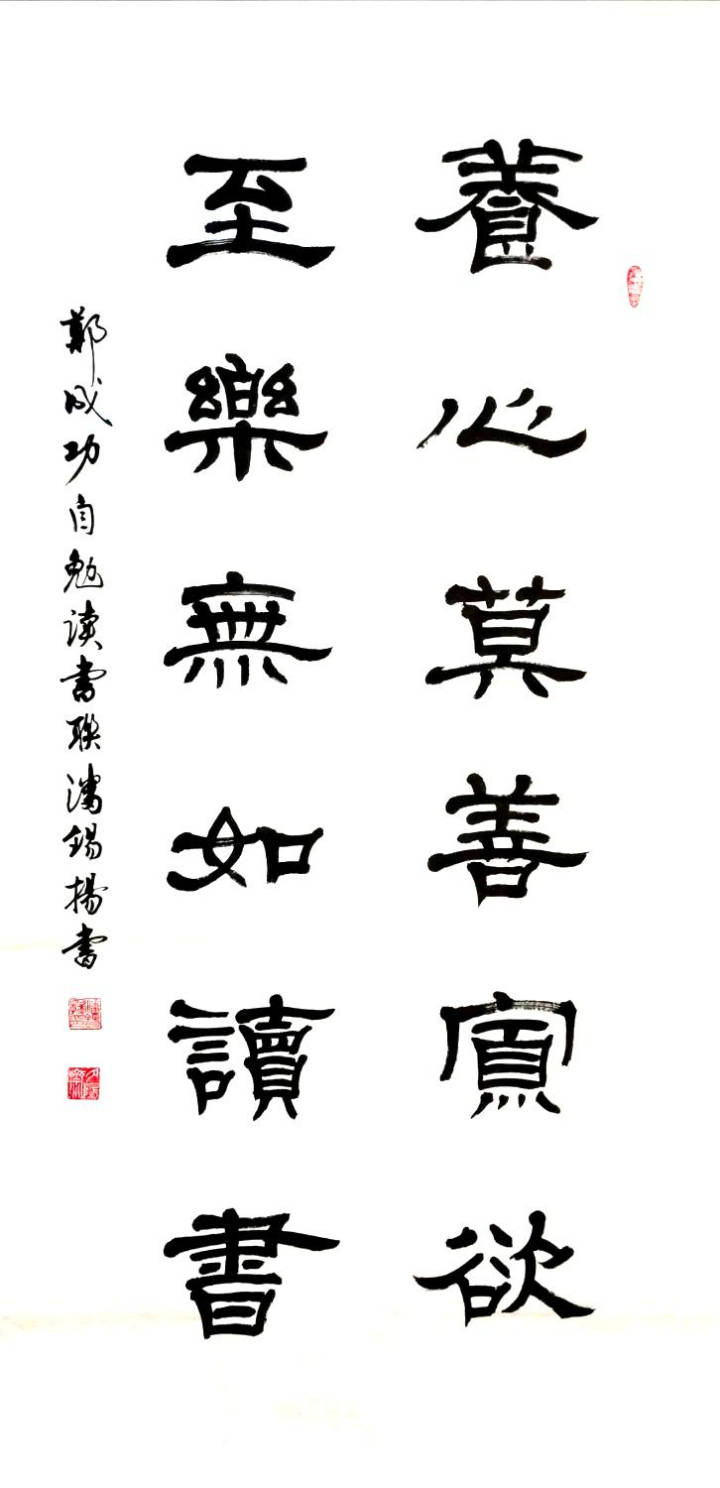 養心莫善寡欲
至樂無如讀書
鄭成功自勉读書聯潘錫揚書